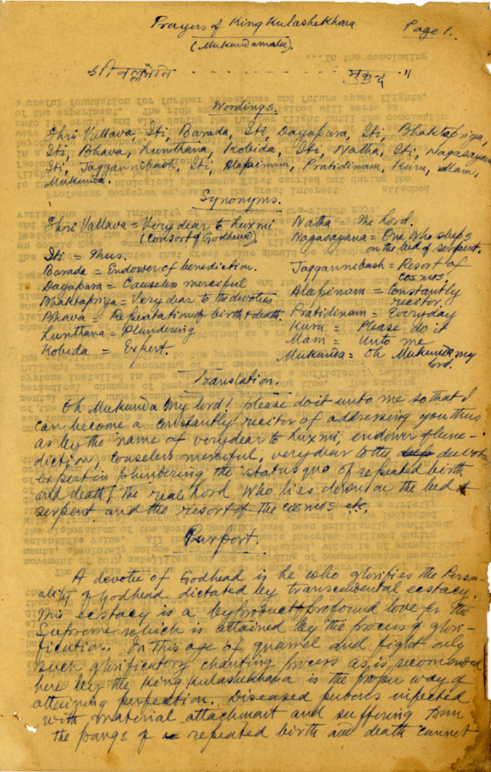 Prayers of King Kulashekhara Page 1.
(Mukundamala).
श्रीवल्लभेति - - - - - - - मुकुन्द ॥
Wordings.
Shri Vallava, Iti, Barada, Iti, Dayapara, Iti, Bhaktapriya,
Iti, Bhava, Lunthana, Kobida, Iti, Natha, Iti, Nagasayana
Iti, Jagannibash, Iti, Alapinam, Pratidinam, Kuru, Mam,
Mukunda.
Synonyms.
Shri Vallava = Very dear to Luxmi
(Consort of Godhead).
Iti = Thus.
Barada = Endower of benediction.
Dayapara = Causeless merciful
Bhaktapriya = Very dear to the devotees
Bhava = Repeatation of birth & death.
Lunthana = Plundering
Kobida = Expert.
Natha = The Lord.
Nagasayana = One who sleeps
on the bed of serpent.
Jaggannibash = Resort of
cosmos.
Alapinam = Constantly
recitor.
Pratidinam = Everyday
Kuru = Please do it
Mam = Unto me
Mukunda = Oh Mukunda my
lord.
Translation.
Oh Mukunda my lord! please do it unto me so that I
can become a constantly recitor of addressing you thus
as by the name of very dear to Luxmi, endower of bene-
diction, causeless merciful, very dear to the devotees
expert in plundering the status quo of repeated birth
and death, the real Lord who lies down on the bed of
serpent and the resort of the cosmos etc.
Purport.
A devotee of Godhead is he who glorifies the Person-
ality of Godhead dictated by transcendental ecstacy.
This ecstacy is a byproduct of profound love for the
Supreme which is attained by the process of glori-
fication. In this age of quarrel and fight only
such glorificatory chanting process as is recommended
here by the King Kulashekhara is the proper way of
attaining perfection. Diseased persons infected
with material attachment and suffering from
the pangs of repeated birth and death cannot